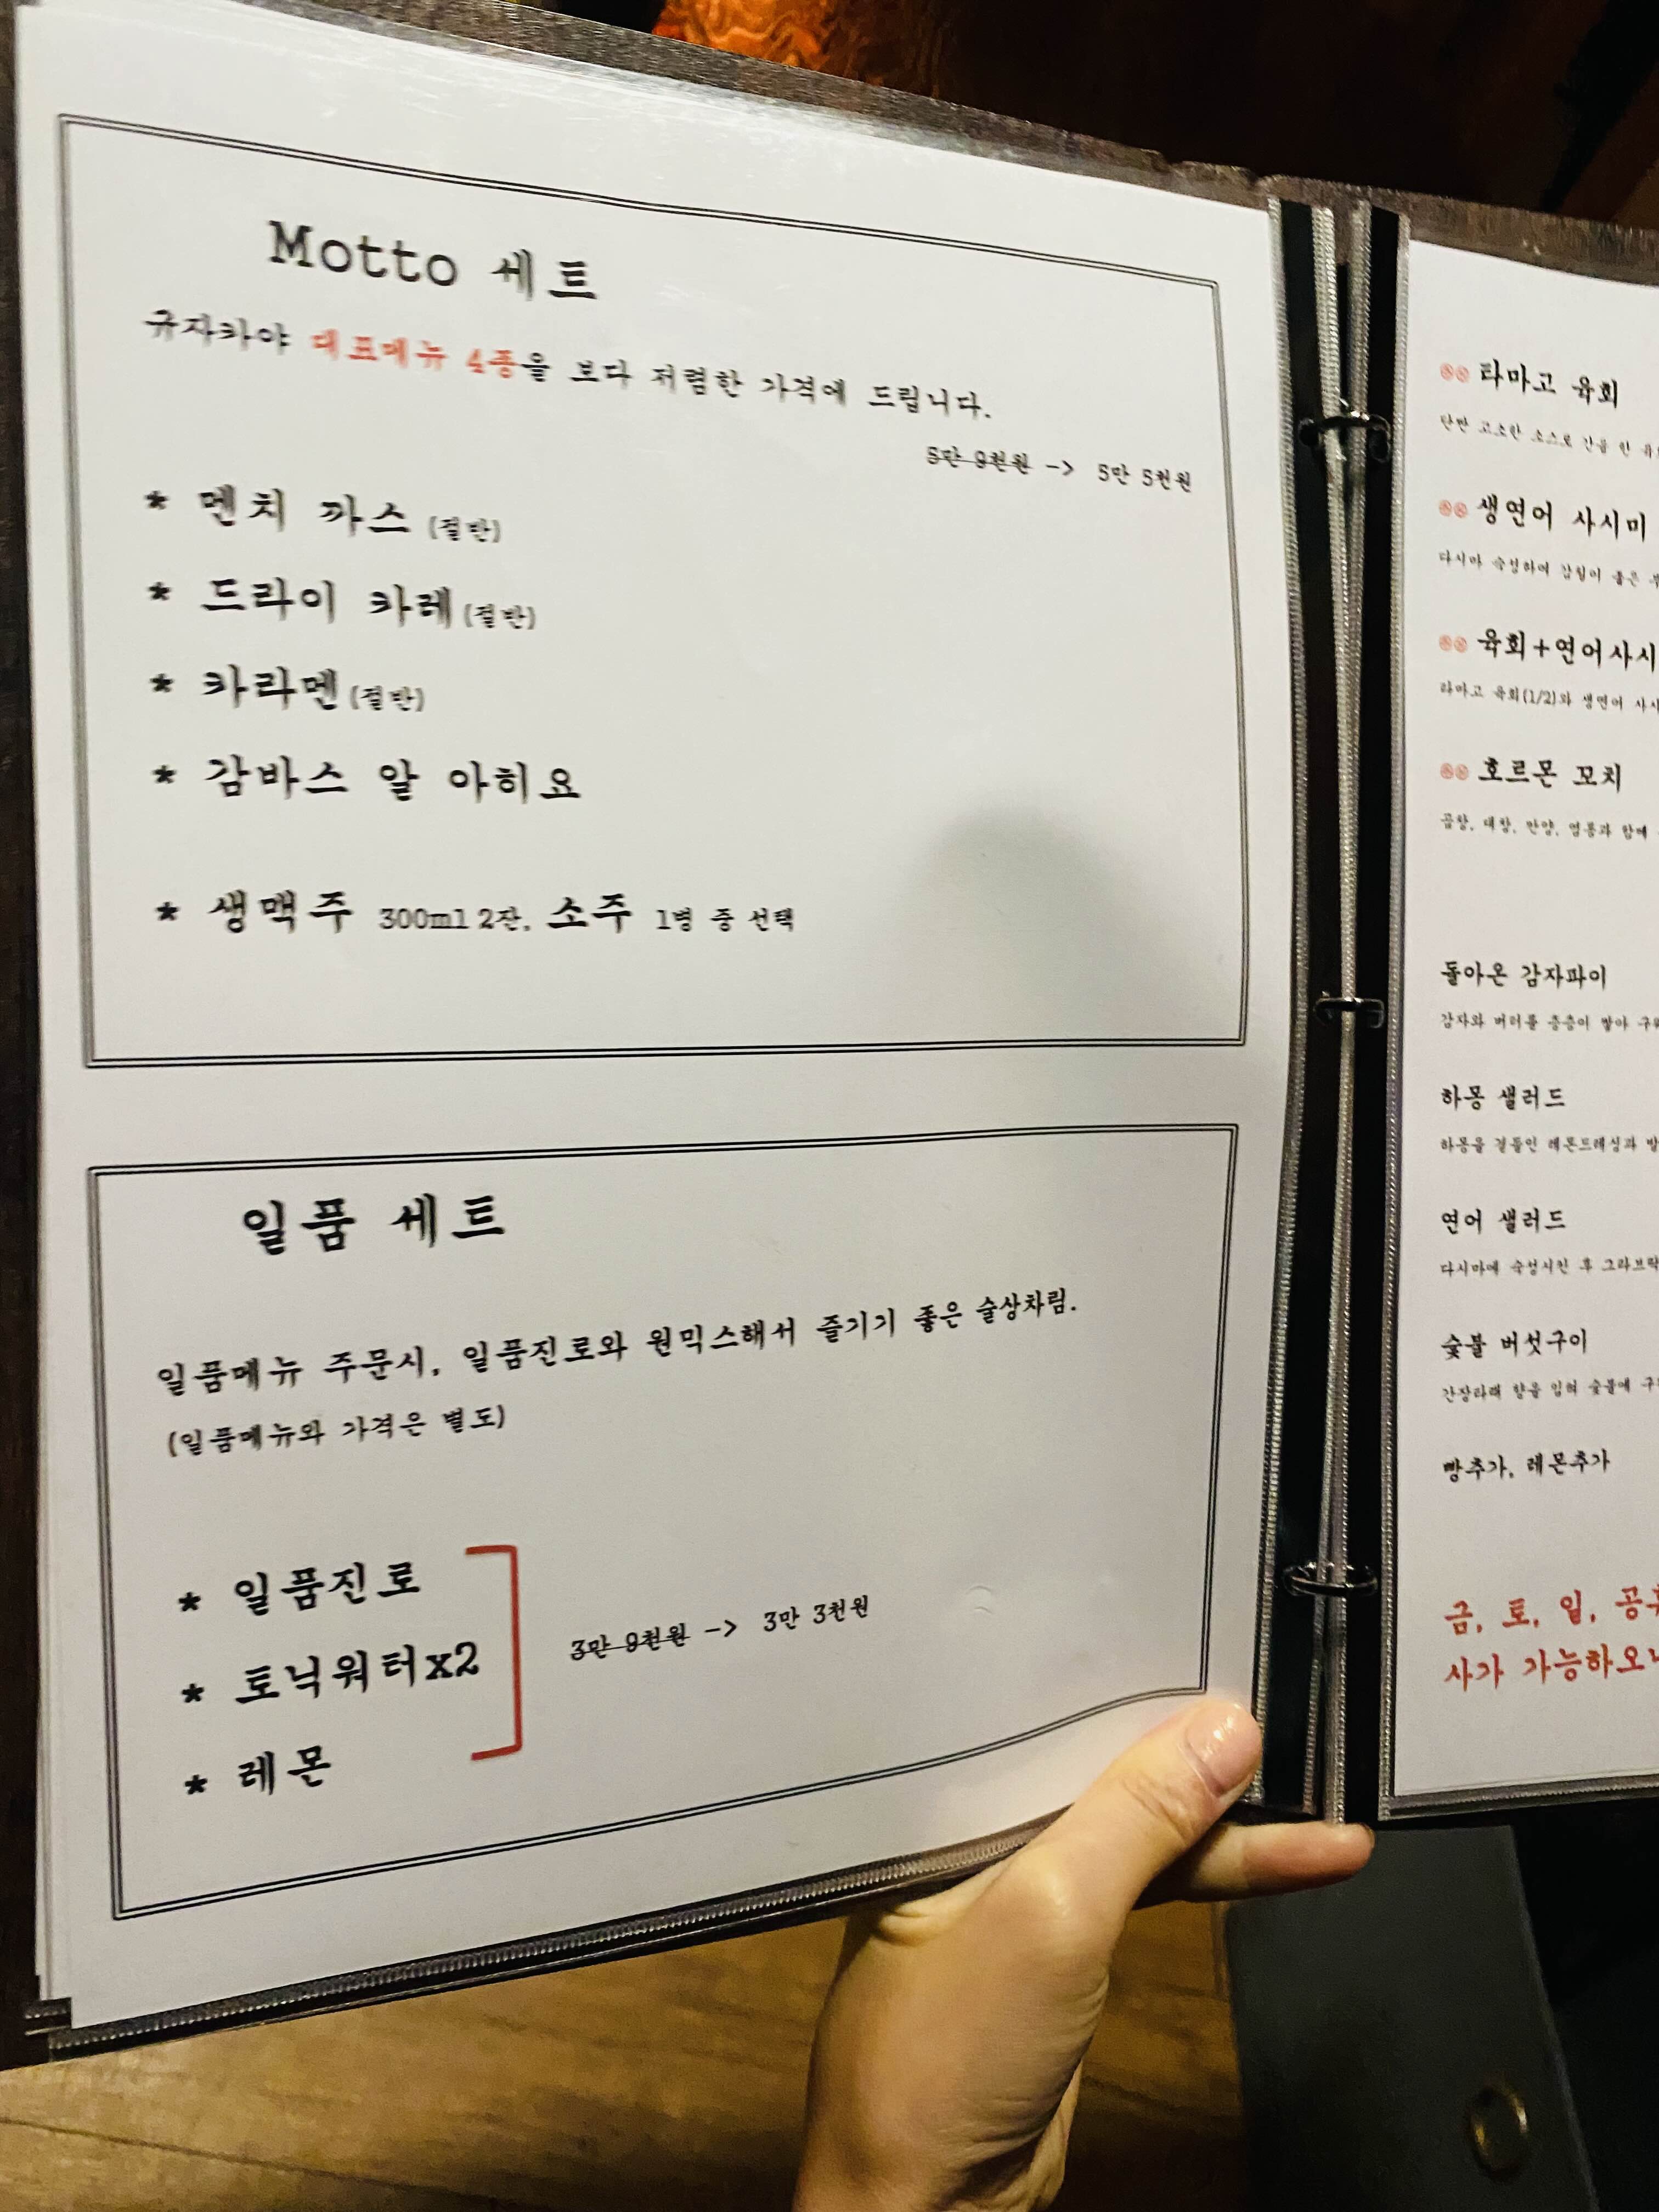 Motto 세트
규자카야 대표메뉴 4종을 보다 저렴한 가격에 드립니다.
5만 9천원 -> 5만 5천원
* 멘치 까스 (절반)
* 드라이 카레 (절반)
* 카라멘 (절반)
* 감바스 알 아히요
* 생맥주 300ml 2잔, 소주 1병 중 선택
일품 세트
일품메뉴 주문시, 일품진로와 원믹스해서 즐기기 좋은 술상차림.
(일품메뉴와 가격은 별도)
* 일품진로
* 토닉워터x2
* 레몬
3만 9천원 -> 3만 3천원
타마고 육회
단짠 고소한 소스로 간을 한
생연어 사시미
다시마 숙성하여 감칠이 좋은
육회+연어사시
타마고 육회(1/2)와 생연어
호르몬 꼬치
곱창, 대창, 안양, 염통과 함께
돌아온 감자파이
감자와 버터를 층층이 쌓아
하몽 샐러드
하몽을 곁들인 레몬드레싱과
연어 샐러드
다시마에 숙성시킨 후 그라브락
숯불 버섯구이
간장타래 향을 입혀 숯불에
빵추가, 레몬추가
금, 토, 일,
사가 가능하오니